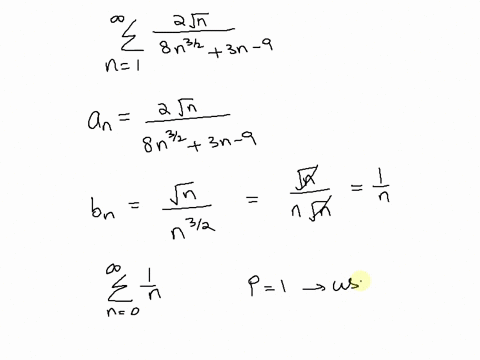 ∞ Σ n=1 2√n / 8n^3/2 + 3n - 9
an = 2√n / 8n^3/2 + 3n - 9
bn = √n / n^3/2 = √n / n√n = 1/n
∞ Σ n=0 1/n P=1 →